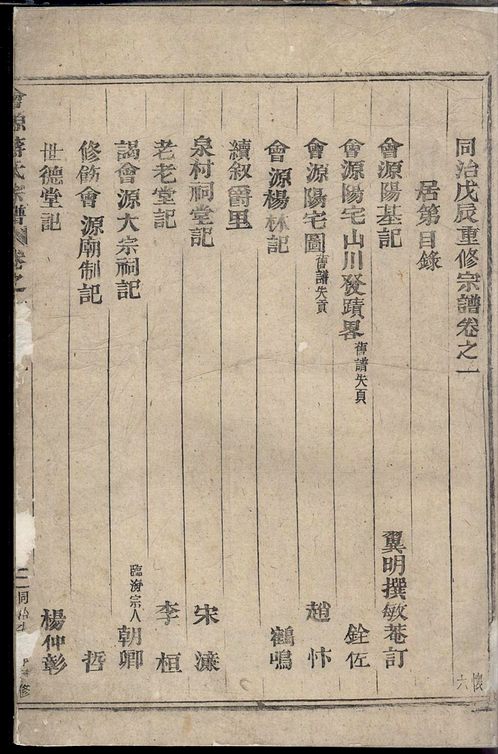 同治戊辰重修宗譜卷之一
居第目錄
會源陽基記 翼明撰敏菴訂
會源陽宅山川發蹟畧 舊譜失頁 銓佐
會源陽宅圖 舊譜失頁 趙怲
會源楊林記 鶴鳴
續叙爵里
泉村祠堂記 宋濂
老老堂記 李桓
謁會源大宗祠記 臨海宗人 朝卿
修飭會源廟制記 哲
世德堂記 楊仲彰
會源 氏宗譜 卷之
同治
修
懷六